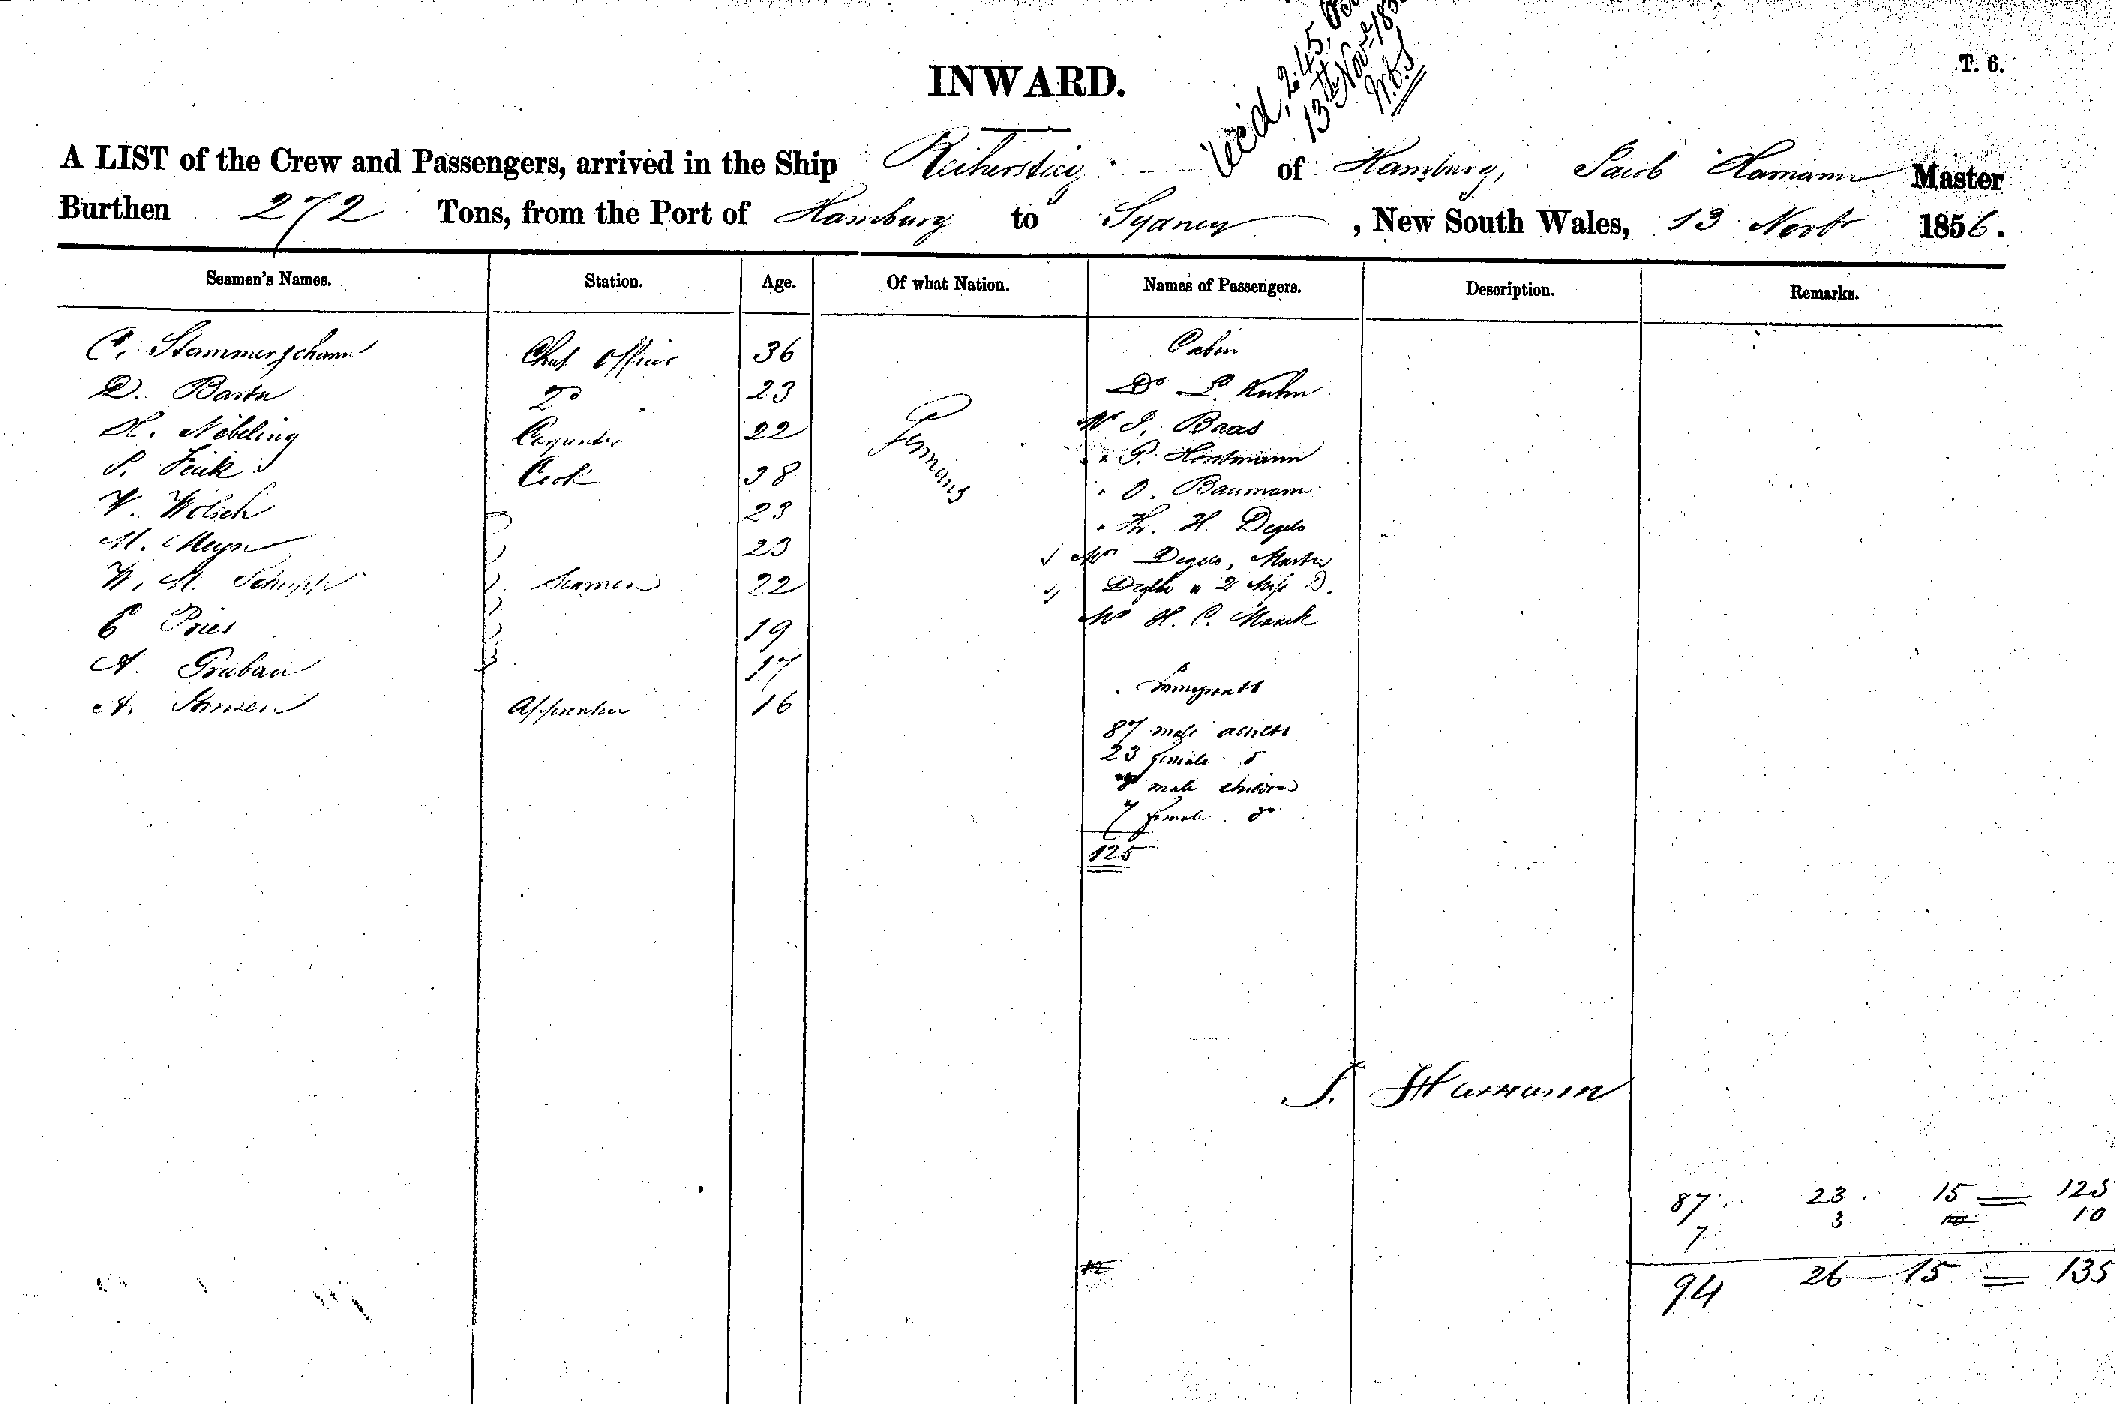 INWARD.
T. 6.
Rec'd, 2.45,
13th Novr 185
A LIST of the Crew and Passengers, arrived in the Ship Reiherstieg of Hamburg, Jacob Hamann Master
Burthen 272 Tons, from the Port of Hamburg to Sydney, New South Wales, 13 Novbr 1856.
Seamen's Names. Station. Age. Of what Nation. Names of Passengers. Description. Remarks.
C. Stammerjohann Chief Officer 36 Cabin
D. 2 Do 23 Dr L. Kuhn
H. Nobeling Carpenter 22 Germans Mr J. Baas
Cook 38 " P. Horstmann
W. Wolsch 23 " O. Baumann
M. Meyn 23 " H. Degels
W. M. Seamen 22 Mrs Degels, Master
19 Degels & 2 Miss D.
A. 17 Mr H. C.
A. Apprentice 16
Immigrants
87 male adults
23 female do
8 male children
7 female do
125
J. JHamann
87 23 15 = 125
7 3 10
94 26 15 = 135